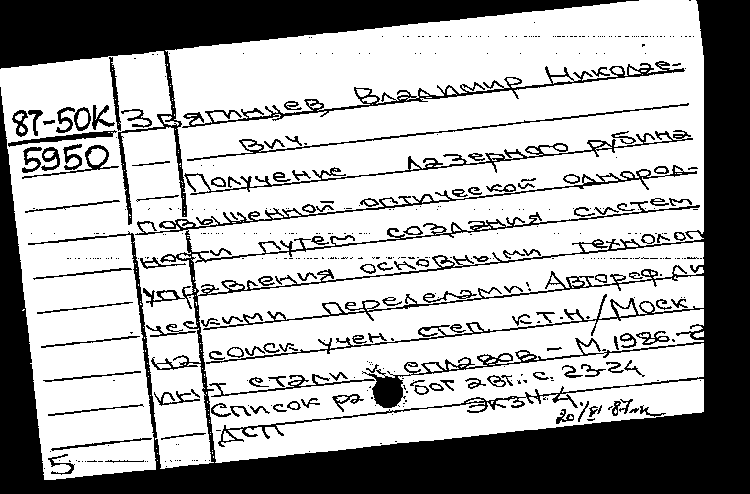 87-50К
5950
Звягинцев, Владимир Николае-
вич.
Получение лазерного рубина
повышенной оптической однород-
ности путем создания систем
управления основными технологи
ческими переделами: Автореф. ди
на соиск. учен. степ. к.т.н. / Моск.
ин-т стали и сплавов. - М, 1986. - 2
Список работ авт.: с. 23-24
ДСП Экз Н-4
5